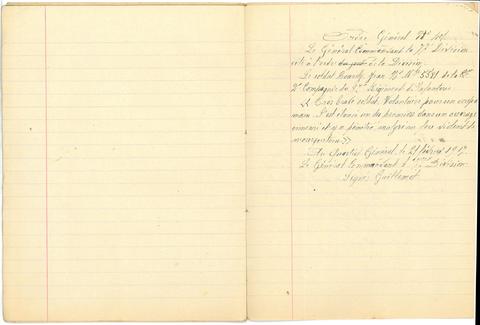 Ordre Général N°
Le Général Commandant la 77e Division
cite à l'ordre de la Division.
Le soldat Jean N° Mle 5581 de la
2e Compagnie du Régiment d'Infanterie
« Très brave soldat. Volontaire pour un coup de
main. S'est élancé un des premiers dans un ouvrage
ennemi et y a pénétré, malgré un feu violent de
mousqueterie »
Au Quartier Général, le 21 février 1917
Le Général Commandant la 77e Division
Signé Guillemot